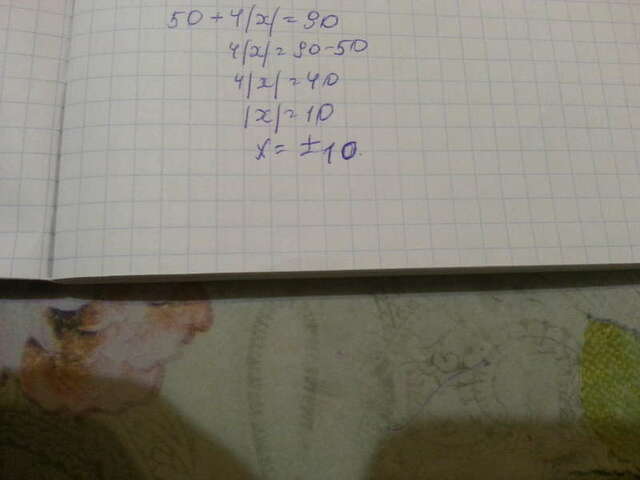 50 + 4|x| = 90
4|x| = 90 - 50
4|x| = 40
|x| = 10
x = ±10.